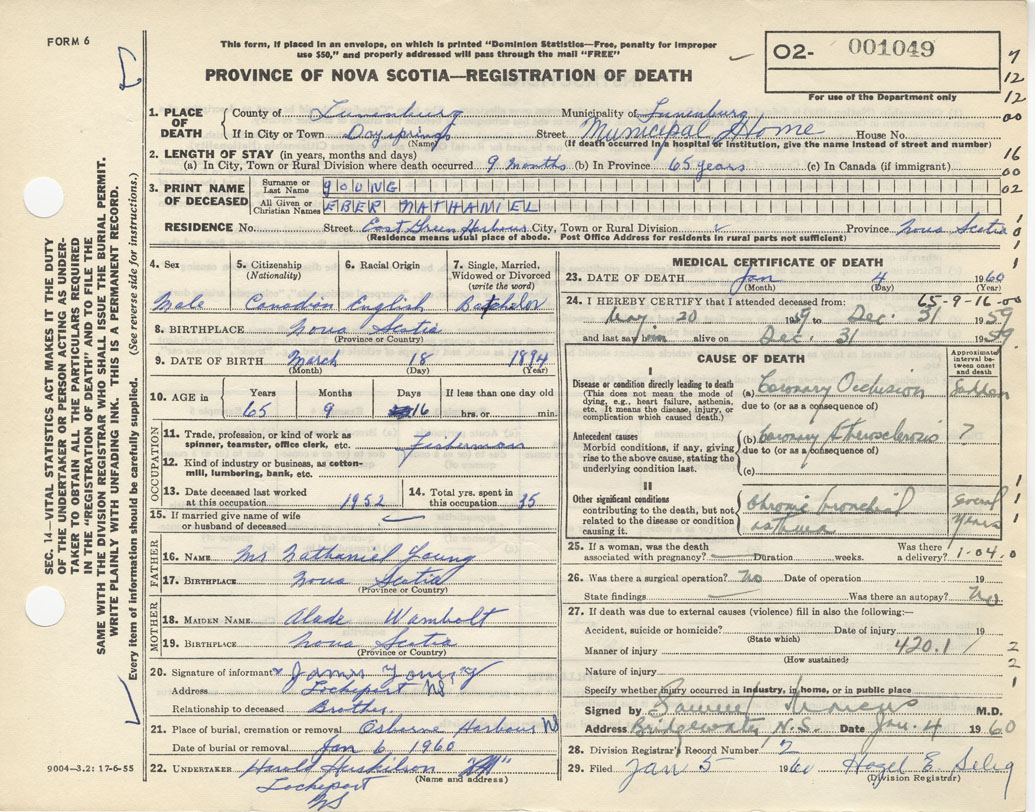 FORM 6
This form, if placed in an envelope, on which is printed "Dominion Statistics—Free, penalty for improper
use $50," and properly addressed will pass through the mail "FREE"
PROVINCE OF NOVA SCOTIA—REGISTRATION OF DEATH
O2- 001049
For use of the Department only
7
12
12
00
16
00
02
SEC. 14—VITAL STATISTICS ACT MAKES IT THE DUTY
OF THE UNDERTAKER OR PERSON ACTING AS UNDER-
TAKER TO OBTAIN ALL THE PARTICULARS REQUIRED
IN THE "REGISTRATION OF DEATH" AND TO FILE THE
SAME WITH THE DIVISION REGISTRAR WHO SHALL ISSUE THE BURIAL PERMIT.
WRITE PLAINLY WITH UNFADING INK. THIS IS A PERMANENT RECORD.
Every item of information should be carefully supplied. (See reverse side for instructions.)
1. PLACE OF DEATH
County of Lunenburg Municipality of Lunenburg
If in City or Town Dayspring Street Municipal Home House No.
(Name) (If death occurred in a hospital or institution, give the name instead of street and number)
2. LENGTH OF STAY (in years, months and days)
(a) In City, Town or Rural Division where death occurred 9 months (b) In Province 65 years (c) In Canada (if immigrant)
3. PRINT NAME OF DECEASED
Surname or Last Name YOUNG
All Given or Christian Names EBER NATHANIEL
RESIDENCE No. Street East Green Harbour City, Town or Rural Division Province Nova Scotia
(Residence means usual place of abode. Post Office Address for residents in rural parts not sufficient)
4. Sex
Male
5. Citizenship (Nationality)
Canadian
6. Racial Origin
English
7. Single, Married, Widowed or Divorced (write the word)
Batchelor
8. BIRTHPLACE Nova Scotia
(Province or Country)
9. DATE OF BIRTH March 18 1894
(Month) (Day) (Year)
10. AGE in Years Months Days If less than one day old
65 9 16 hrs. or min.
OCCUPATION
11. Trade, profession, or kind of work as spinner, teamster, office clerk, etc. Fisherman
12. Kind of industry or business, as cotton-mill, lumbering, bank, etc.
13. Date deceased last worked at this occupation 1952
14. Total yrs. spent in this occupation 35
15. If married give name of wife or husband of deceased
FATHER
16. NAME Mr Nathaniel Young
17. BIRTHPLACE Nova Scotia
(Province or Country)
MOTHER
18. MAIDEN NAME Alade Wambolt
19. BIRTHPLACE Nova Scotia
(Province or Country)
20. Signature of informant James Young
Address Lockeport NS
Relationship to deceased Brother
21. Place of burial, cremation or removal Osborne Harbour NS
Date of burial or removal Jan 6, 1960
22. UNDERTAKER Harold Huskilson
(Name and address)
Lockeport
NS
9004—3.2: 17-6-55
MEDICAL CERTIFICATE OF DEATH
23. DATE OF DEATH Jan 4 1960
(Month) (Day) (Year)
65-9-16-00
24. I HEREBY CERTIFY that I attended deceased from:
May 20 1959 to Dec. 31 1959
and last saw him alive on Dec. 31 1959
CAUSE OF DEATH
Approximate interval between onset and death
I
Disease or condition directly leading to death
(This does not mean the mode of dying, e.g., heart failure, asthenia, etc. It means the disease, injury, or complication which caused death.)
(a) Coronary Occlusion Sudden
due to (or as a consequence of)
Antecedent causes
Morbid conditions, if any, giving rise to the above cause, stating the underlying condition last.
(b) Coronary Atherosclerosis ?
due to (or as a consequence of)
(c)
II
Other significant conditions contributing to the death, but not related to the disease or condition causing it.
Chronic bronchial several
asthma years
25. If a woman, was the death associated with pregnancy? Duration weeks. Was there a delivery?
1-04.0
26. Was there a surgical operation? No Date of operation 19
State findings Was there an autopsy? No
27. If death was due to external causes (violence) fill in also the following:—
Accident, suicide or homicide? Date of injury 19
(State which)
Manner of injury 420.1
(How sustained)
Nature of injury
Specify whether injury occurred in industry, in home, or in public place
Signed by M.D.
Address Bridgewater N.S. Date Jan. 4 1960
28. Division Registrar's Record Number 2
29. Filed Jan 5 1960 Hazel E. Selig
(Division Registrar)